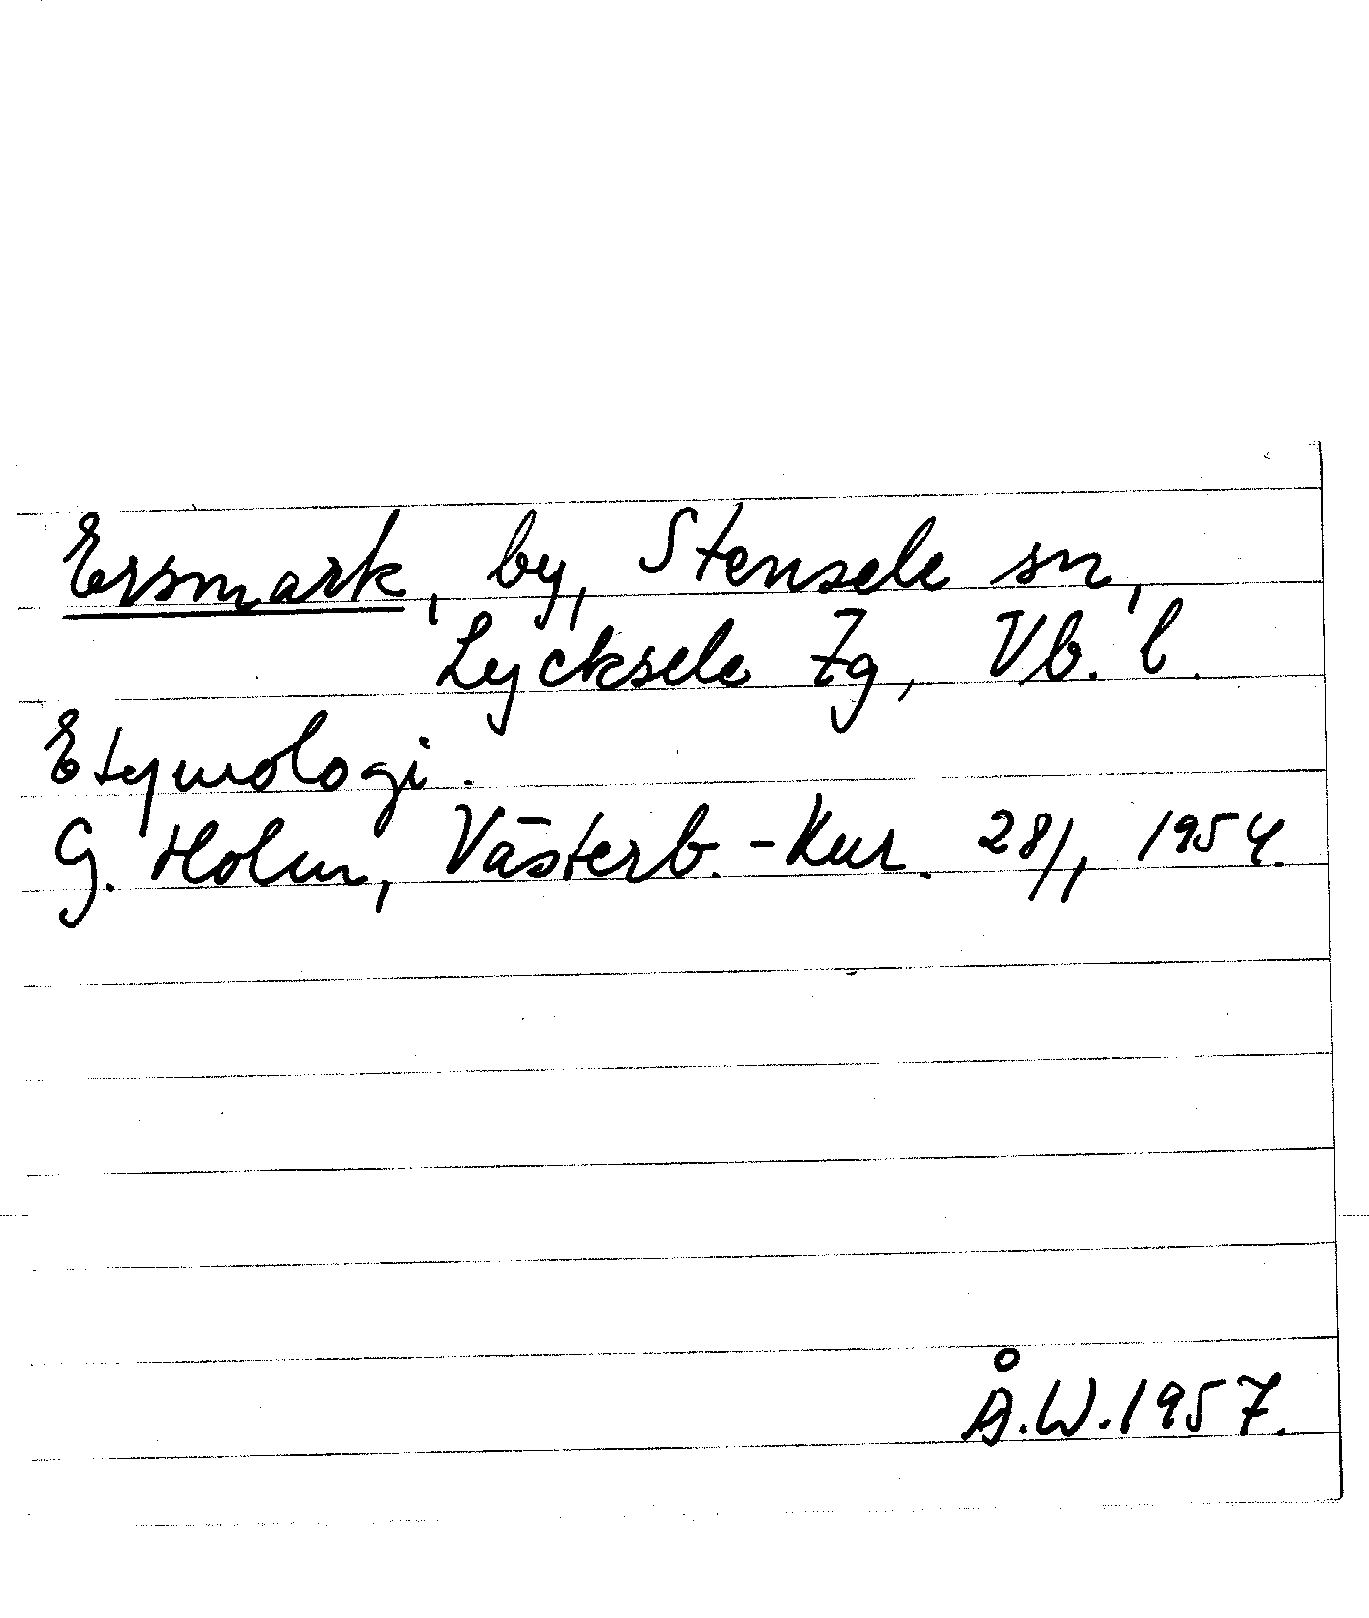 Ersmark, by, Stensele sn,
Lycksele lg, Vb. l.
Etymologi.
G. Holm, Västerb.-Kur. 28/1, 1954.
Å.W. 1957.